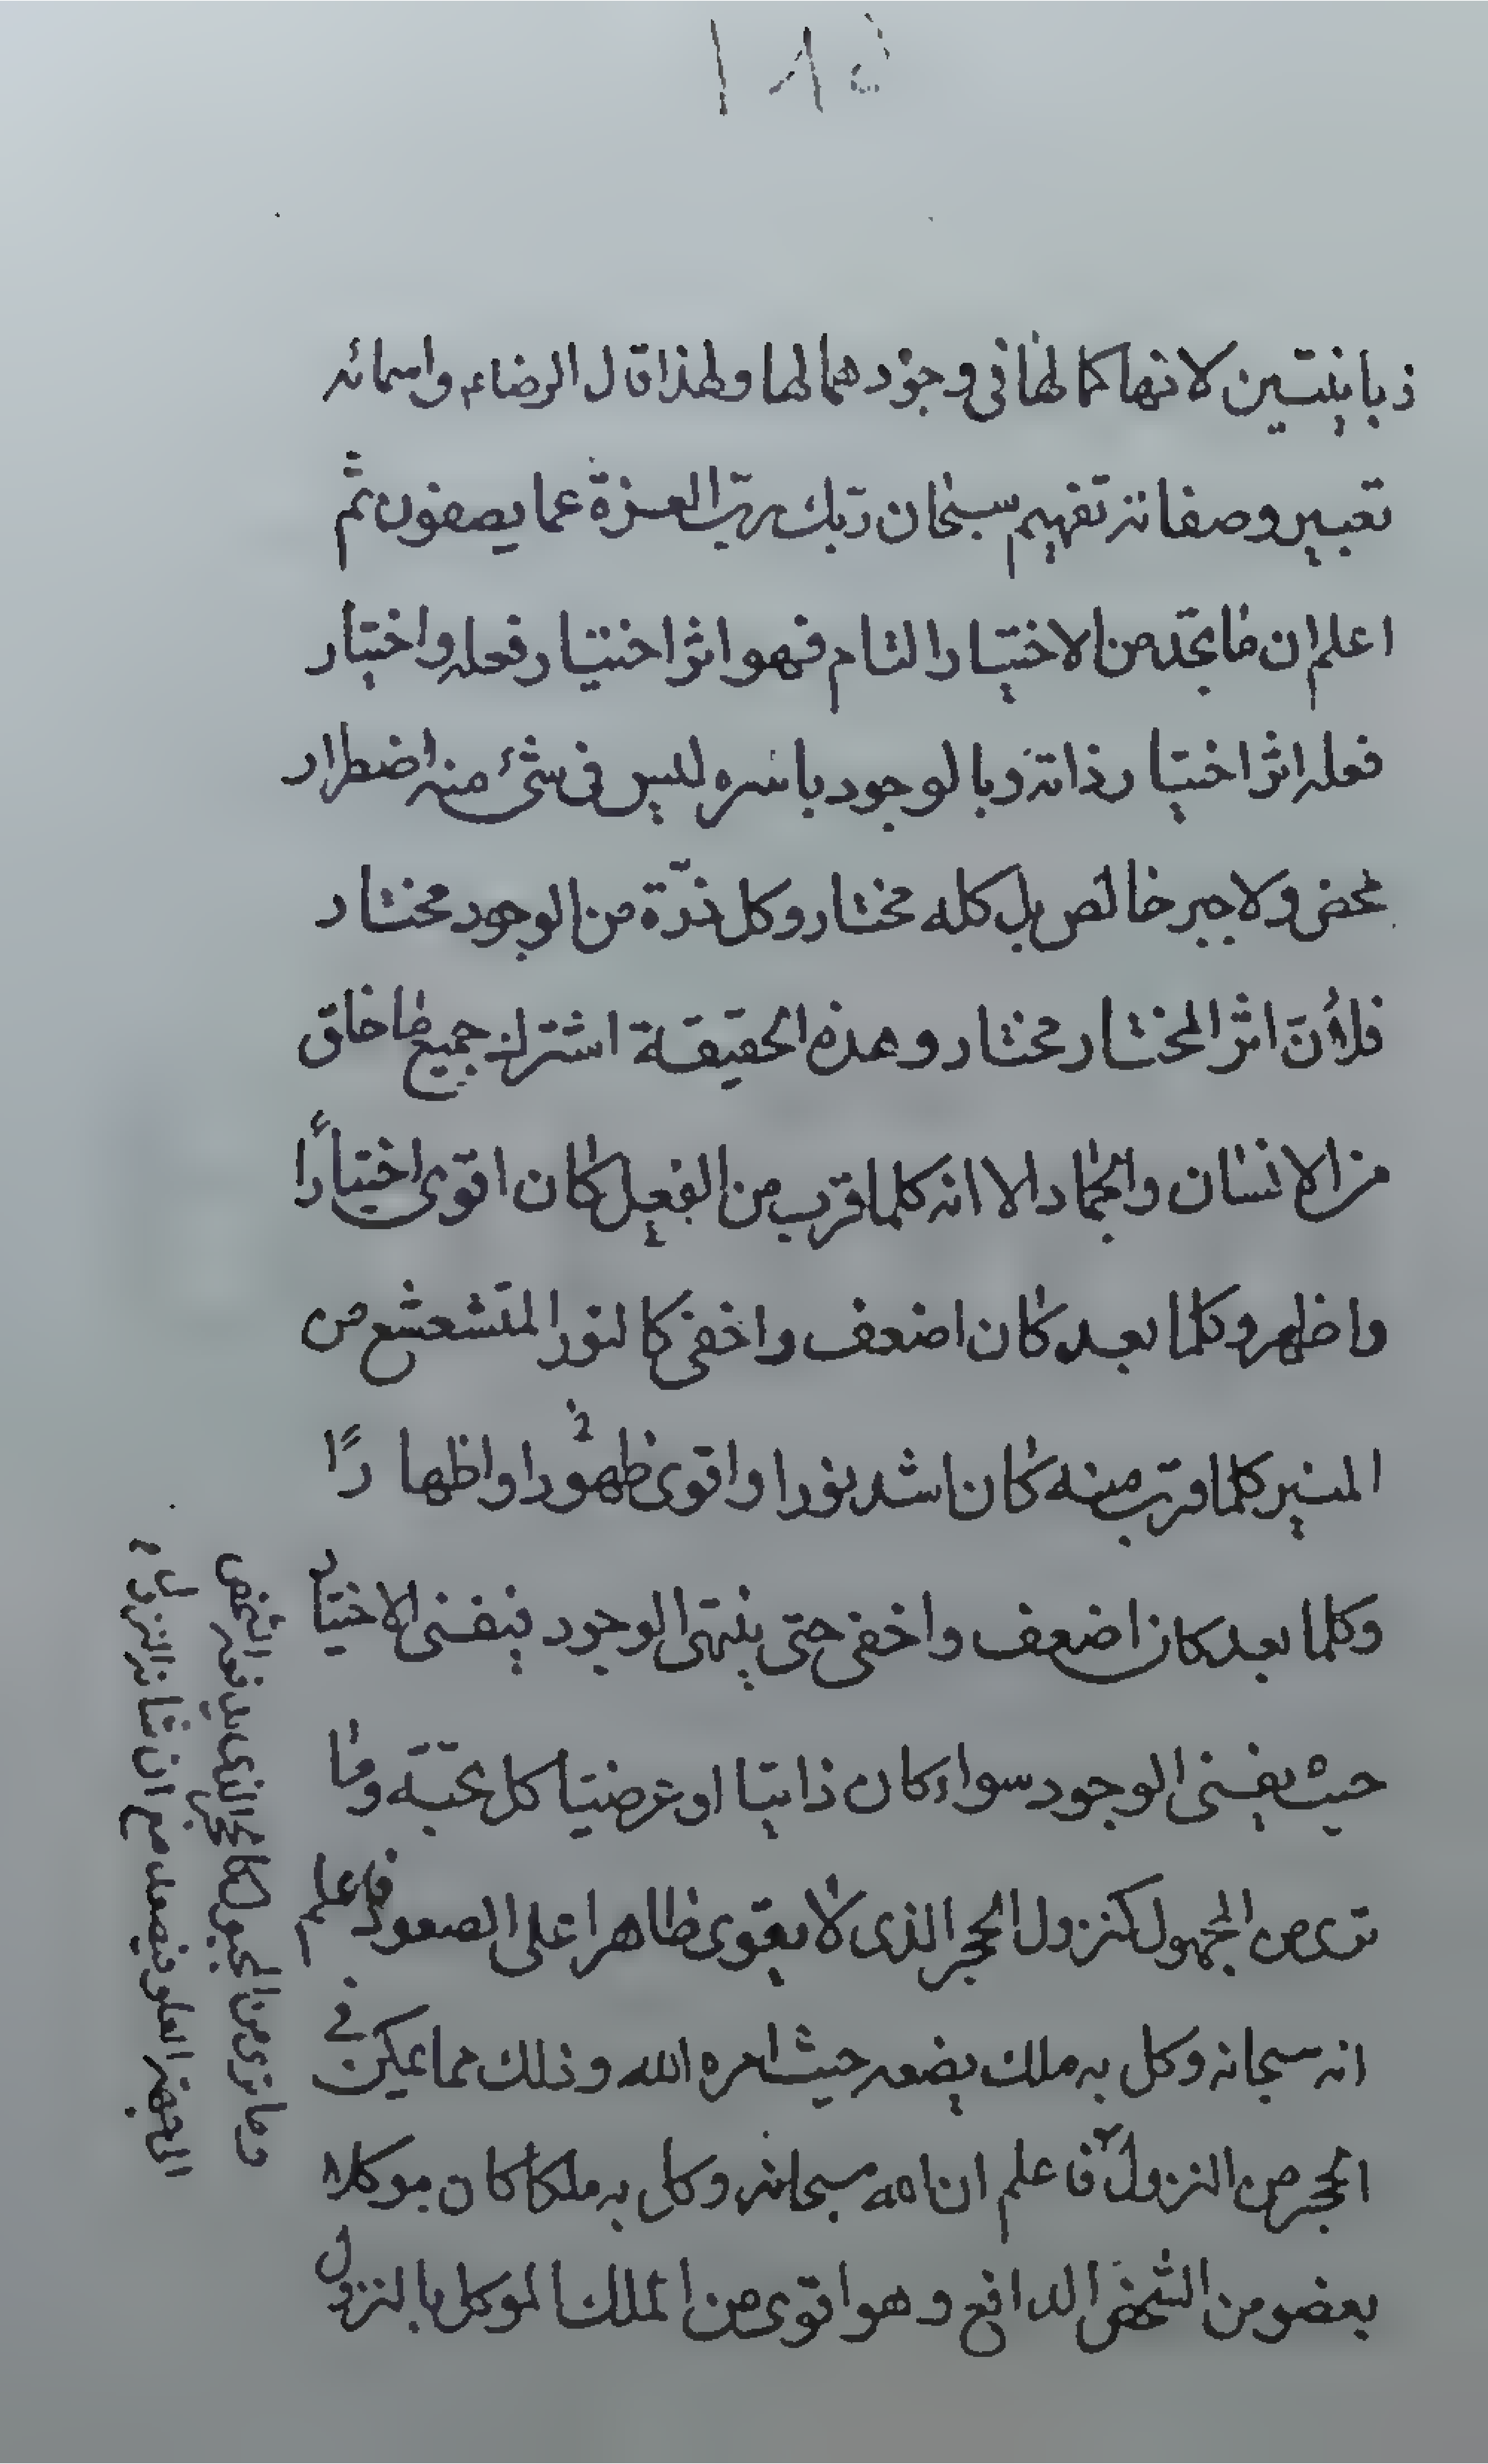 ١٨٥
ذباينتين لانها كما لها في وجودهما لها ولهذا قال الرضاء واسمائه
تعبير وصفاته تفهيم سبحان ربك رب العزة عما يصفون ثم
اعلم ان ما تجده من الاختيار التام فهو اثر اختيار فعله واختيار
فعله اثر اختيار ذاته وبالوجود باسره ليس في شئ منه اضطرار
محض ولا جبر خالص بل كله مختار وكل ذرّة من الوجود مختار
فلأنّ اثر المختار مختار وهذه الحقيقة اشترك جميع ما خلق
من الانسان والجماد الا انه كلما قرب من الفعل كان اقوى اختياراً
واظهر وكلما بعد كان اضعف واخفى كالنور المتشعشع من
المنير كلما قرب منه كان اشد نورا واقوى ظهورا واظهاراً
وكلما بعد كان اضعف واخفى حتى ينتهى الوجود فيفنى الاختيار
حيث يفنى الوجود سواء كان ذاتيا او عرضيا كل بحبّه وما
ترى من المجهول كنزول الحجر الذى لا يقوى ظاهرا على الصعود فاعلم
انه سبحانه وكل به ملك يضعه حيث امره الله وذلك مما يمكن في
الحجر من النزول فاعلم ان الله سبحانه وكل به ملكا كان موكلا
بعضو من الشخص الدافع وهو اقوى من الملك الموكل بالنزول
وما ترى من المجبول كالحجر الذى يدفعه الشخص
الى جهة العلو فيصعد مع ان شانه النزول